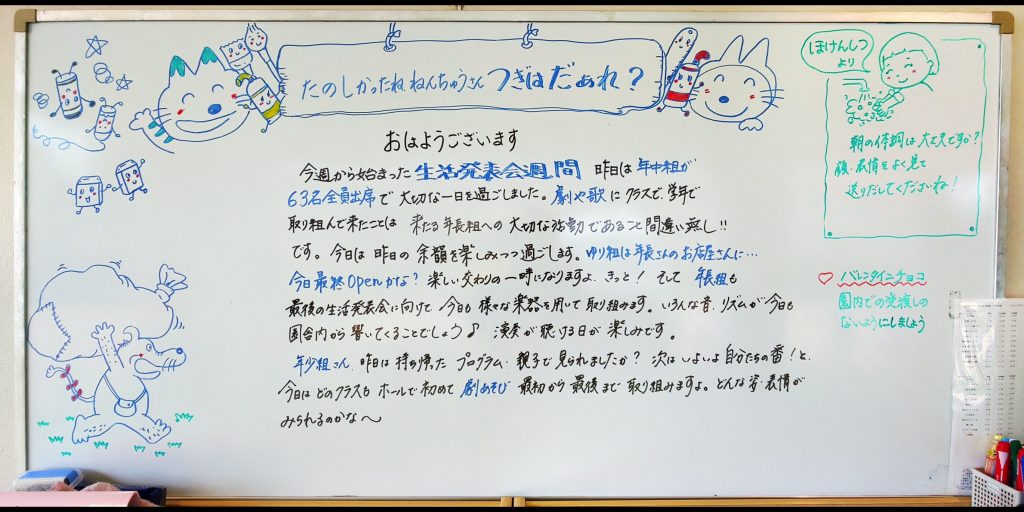 たのしかったね ねんちゅうさん つぎは だぁれ？
おはようございます
今週から始まった 生活発表会週間 昨日は 年中組が
63名全員出席で 大切な一日を過ごしました。劇や歌に クラスで、学年で
取り組んで来たことは 来たる年長組への 大切な活動であること間違い無し!!
です。今日は 昨日の 余韻を楽しみつつ過ごします。ゆり組は年長さんのお店屋さんに…
今日最終Openかな？ 楽しい交わりの一時になりますよ、きっと！ そして 年長組も
最後の生活発表会に向けて 今日も 様々な楽器を用いて 取り組みます。いろんな音、リズムが今日も
園舎内から 響いてくることでしょう♪ 演奏が聴ける日が 楽しみです。
年少組さん、昨日は持ち帰った プログラム、親子で見られましたか？ 次はいよいよ自分たちの番！と、
今日はどのクラスも ホールで初めて 劇あそび 最初から最後まで 取り組みますよ。どんな姿・表情が
みられるのかな〜
ほけんしつ
より
朝の体調は大丈夫ですか？
顔・表情をよく見て
送りだしてくださいね！
♡バレンタインチョコ
園内での受渡しの
ないようにしましょう